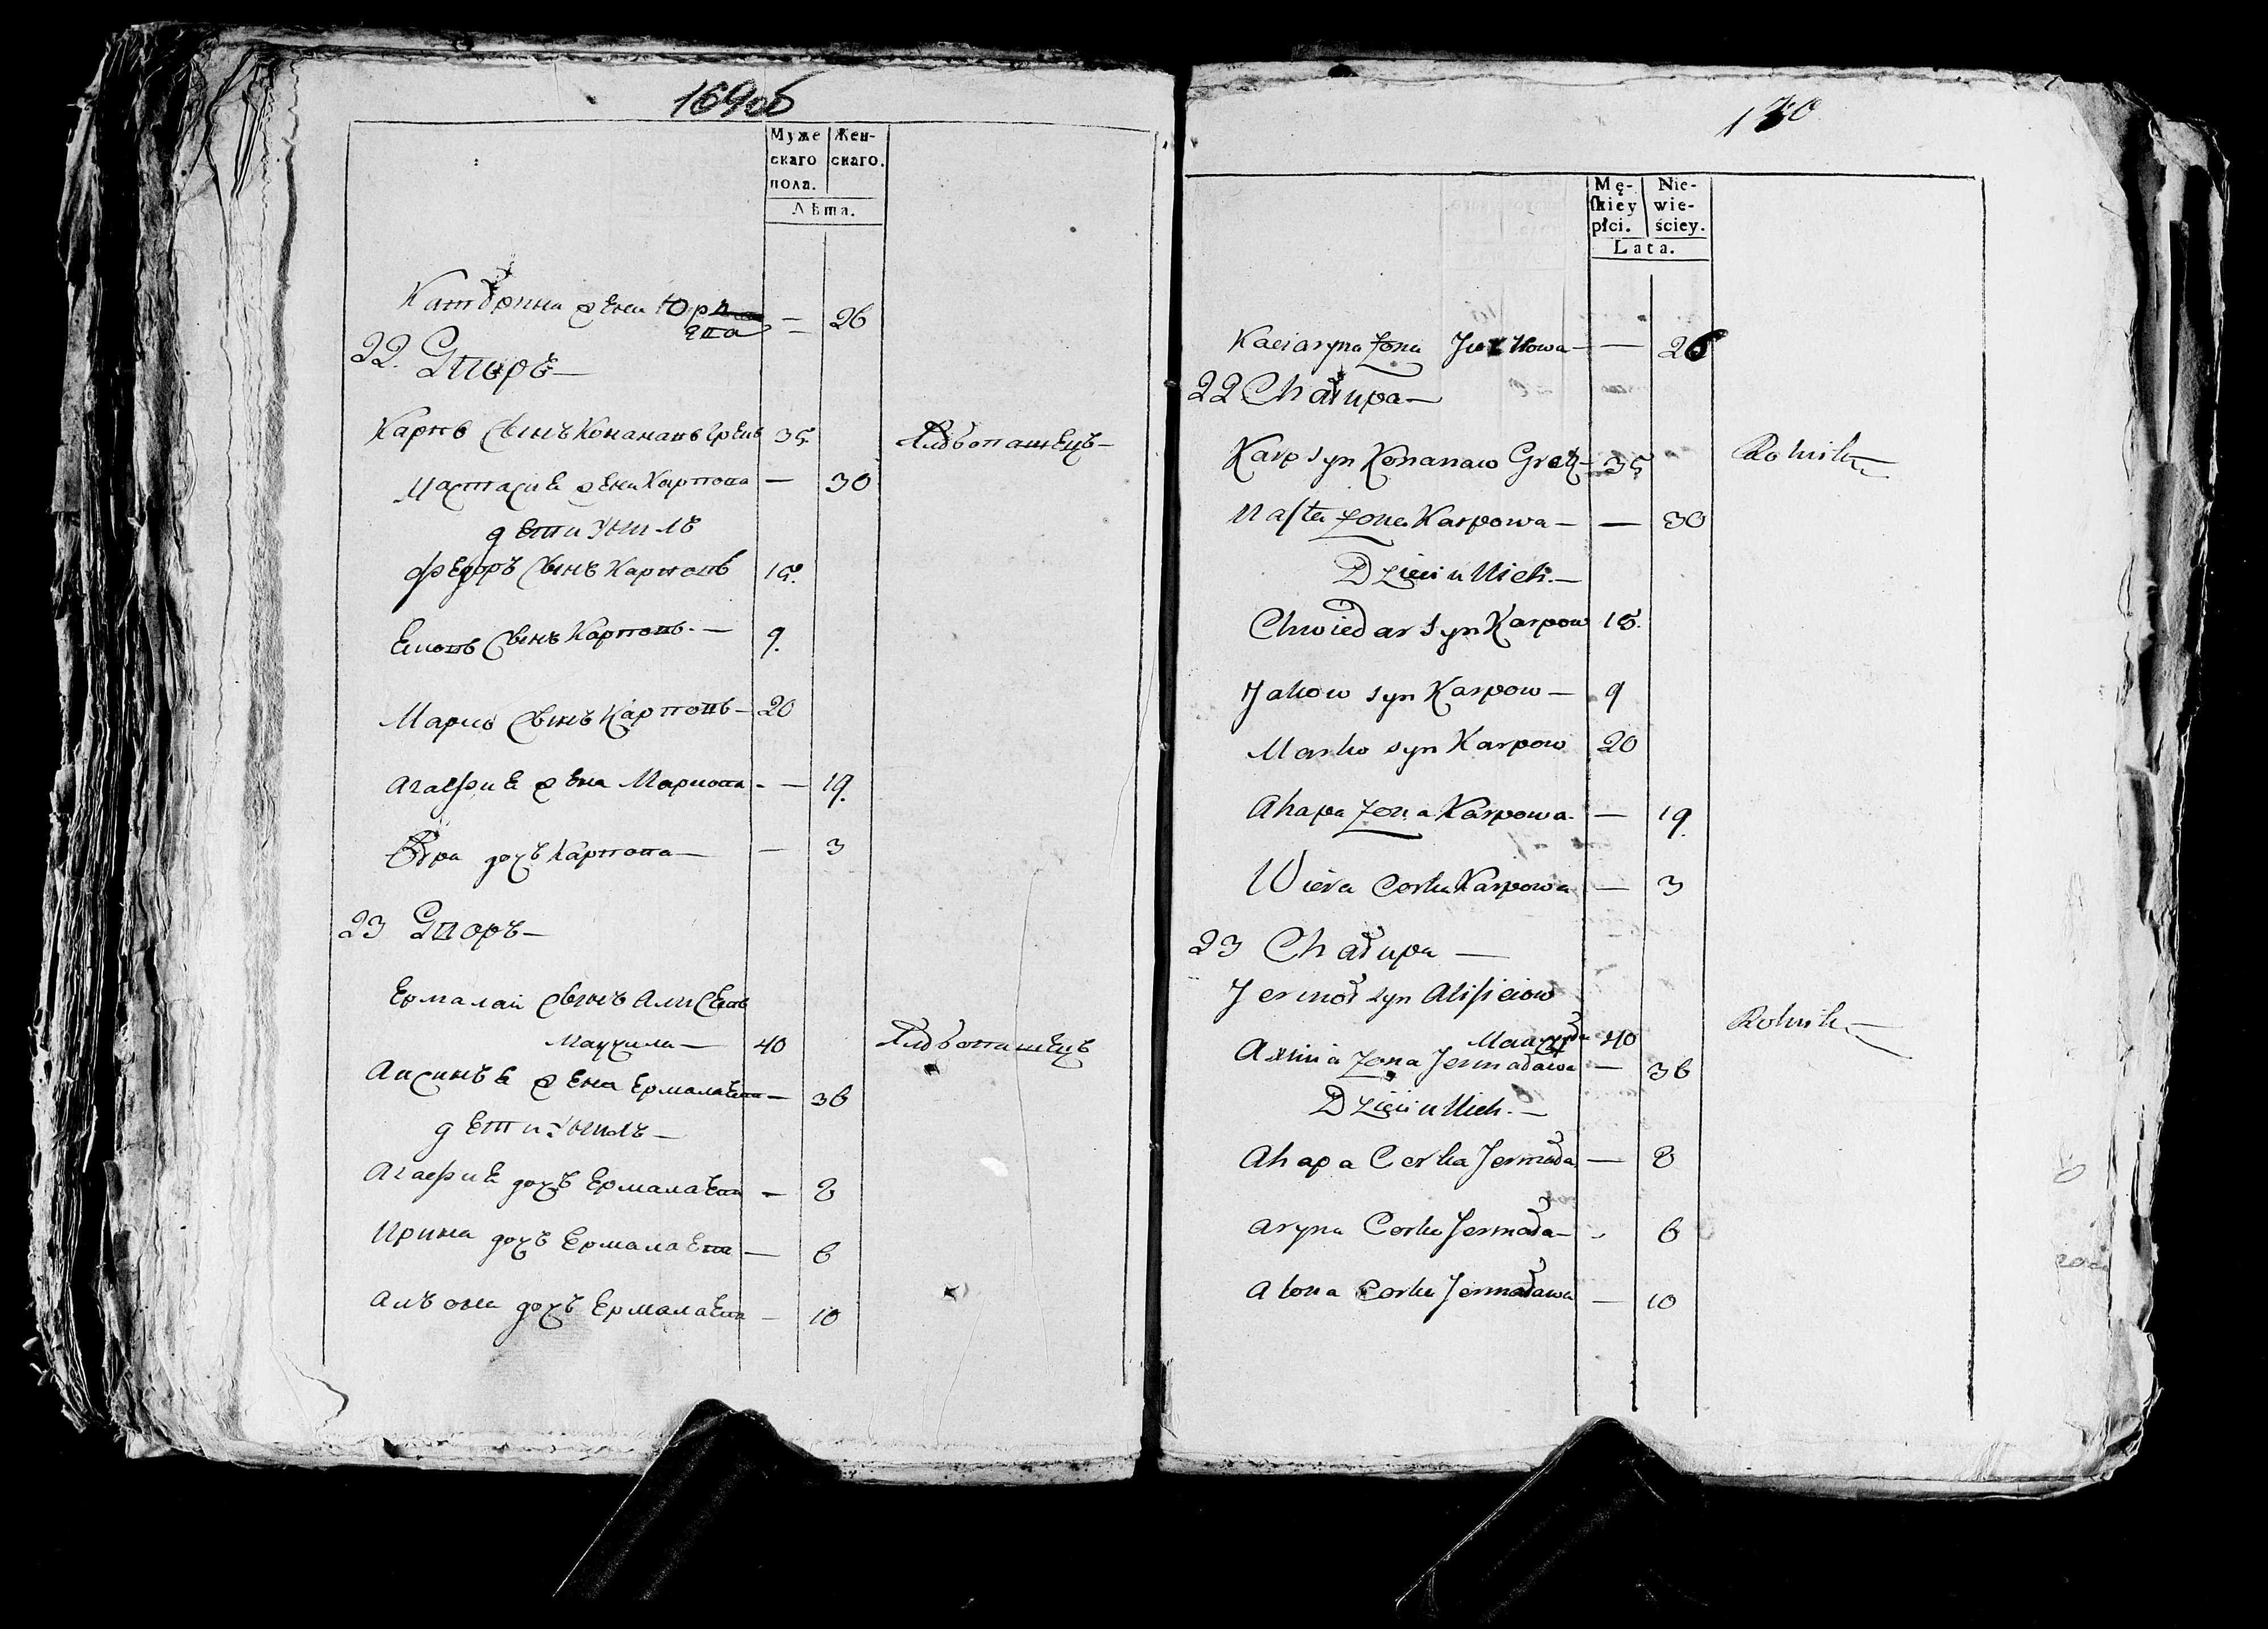 169об
Муже
скаго
пола.
Жен-
скаго.
Лѣта.
Катерина жена Юр
ева — 26
22. Дворъ —
Карпъ сынъ Кананавъ Грецъ 35 Хлѣбопашецъ —
Настасиа жена Карпова — 30
дети у нихъ
Федоръ сынъ Карповъ 15.
Ековъ сынъ Карповъ — 9.
Марко сынъ Карповъ — 20
Агафиа жена Маркова — 19.
Вѣра дочь Карпова — 3
23 Дворъ —
Ермалай сынъ Алисеевъ
40 Хлѣбопашецъ
Аксинья жена Ермалаева — 36
дети у нихъ —
Агафиа дочь Ермалаева — 8
Ирина дочь Ермалаева — 6
Алѣона дочь Ермалаева — 10
170
Mę-
ſkiey
płci.
Nie-
wie-
ściey.
Lata.
Kaciaryna żona — 26
22 Chałupa —
Karp syn Kananaw Gretz — 35 Rolnik —
Naſta żona Karpowa — — 30
Dzieci u Nich. —
Chwiedar syn Karpow 15.
Jakow syn Karpow — 9
Marko syn Karpow 20
Ahapa żona Karpowa — 19.
Wiera Corka Karpowa — 3
23 Chałupa —
Jermoł syn Alisieiow
40 Rolnik —
Axinia żona Jermaława — 36
Dzieci u Nich. —
Ahapa Corka Jermoła — 8
Aryna Corka Jermoła — 6
Alona Corka Jermaława — 10